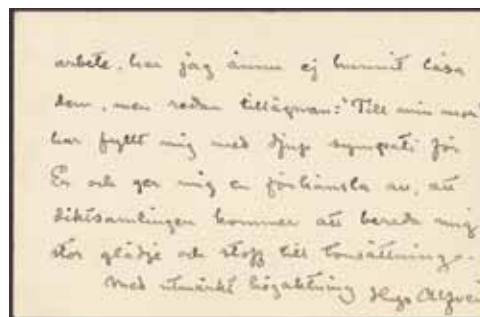 arbete, har jag ännu ej hunnit läsa
dem, men redan tillägnan: "Till min mor"
har fyllt mig med djup sympati för
Er och ger mig en förkänsla av, att
diktsamlingen kommer att bereda mig
stor glädje och stoff till tonsättning.
Med utmärkt högaktning Hugo Alfvén